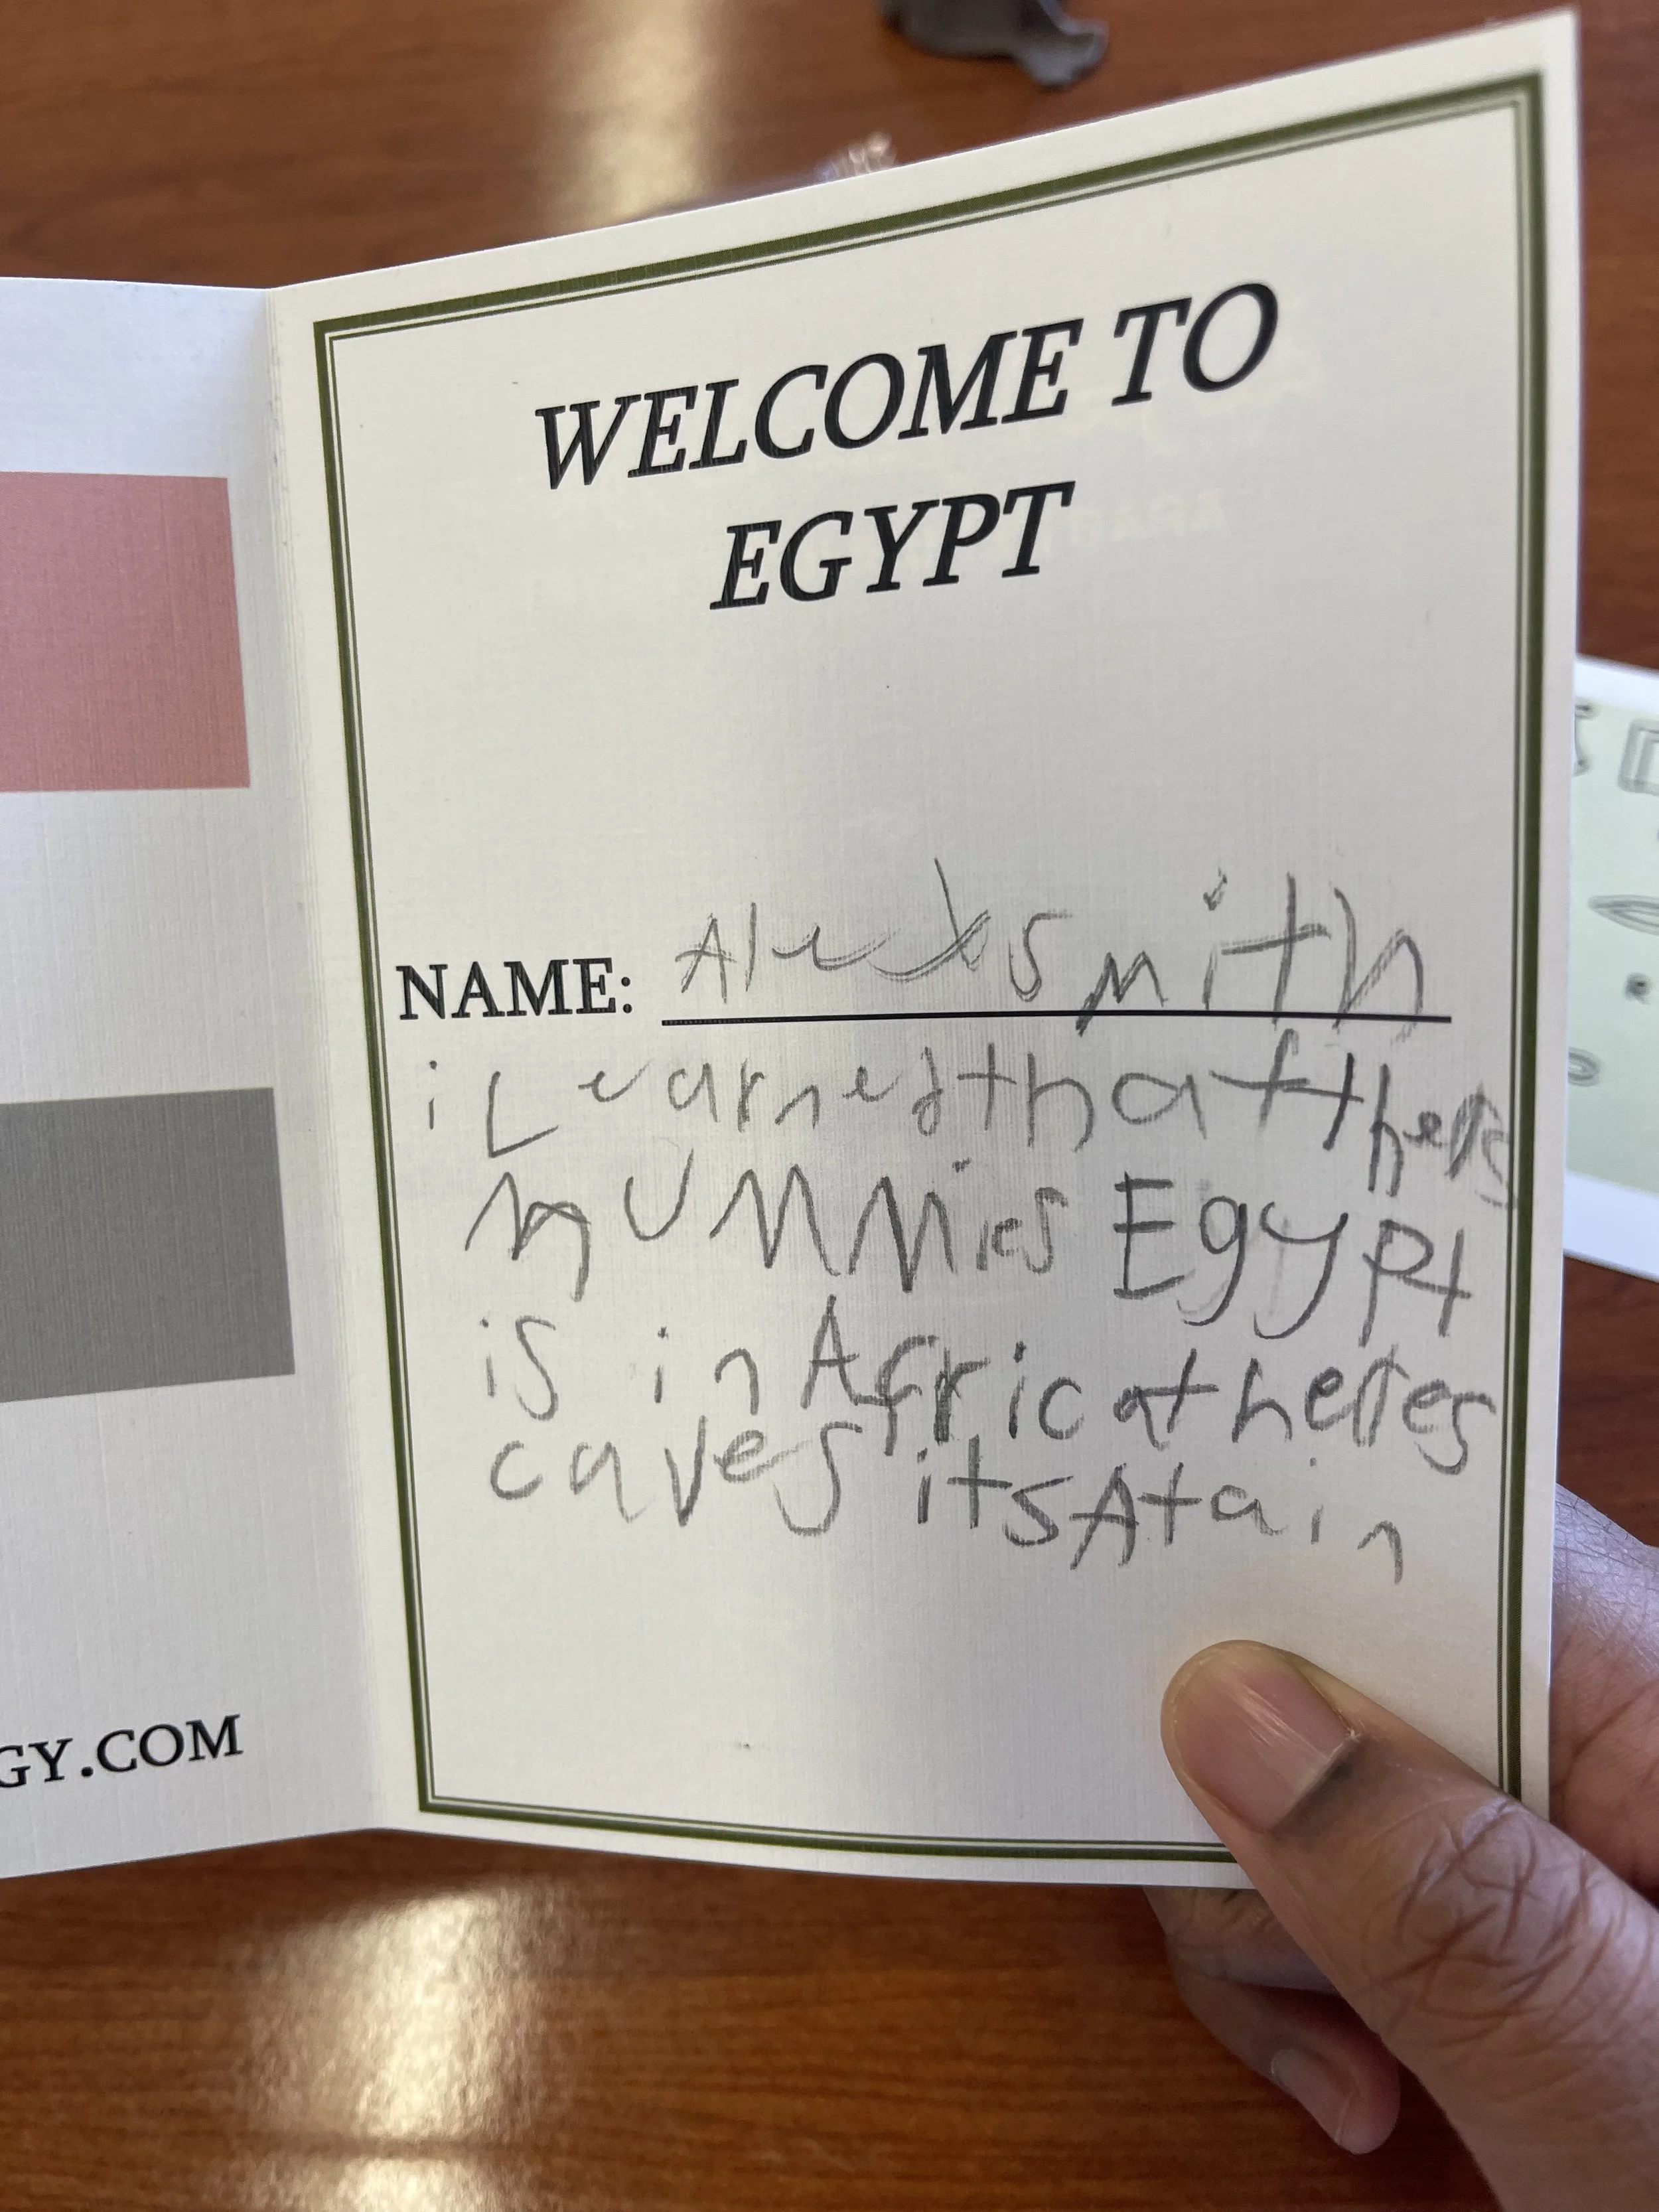 WELCOME TO
EGYPT
NAME: Alex smith
i Learned that theres
mummies Egypt
is in Africa theres
caves its A tain
GY.COM
R